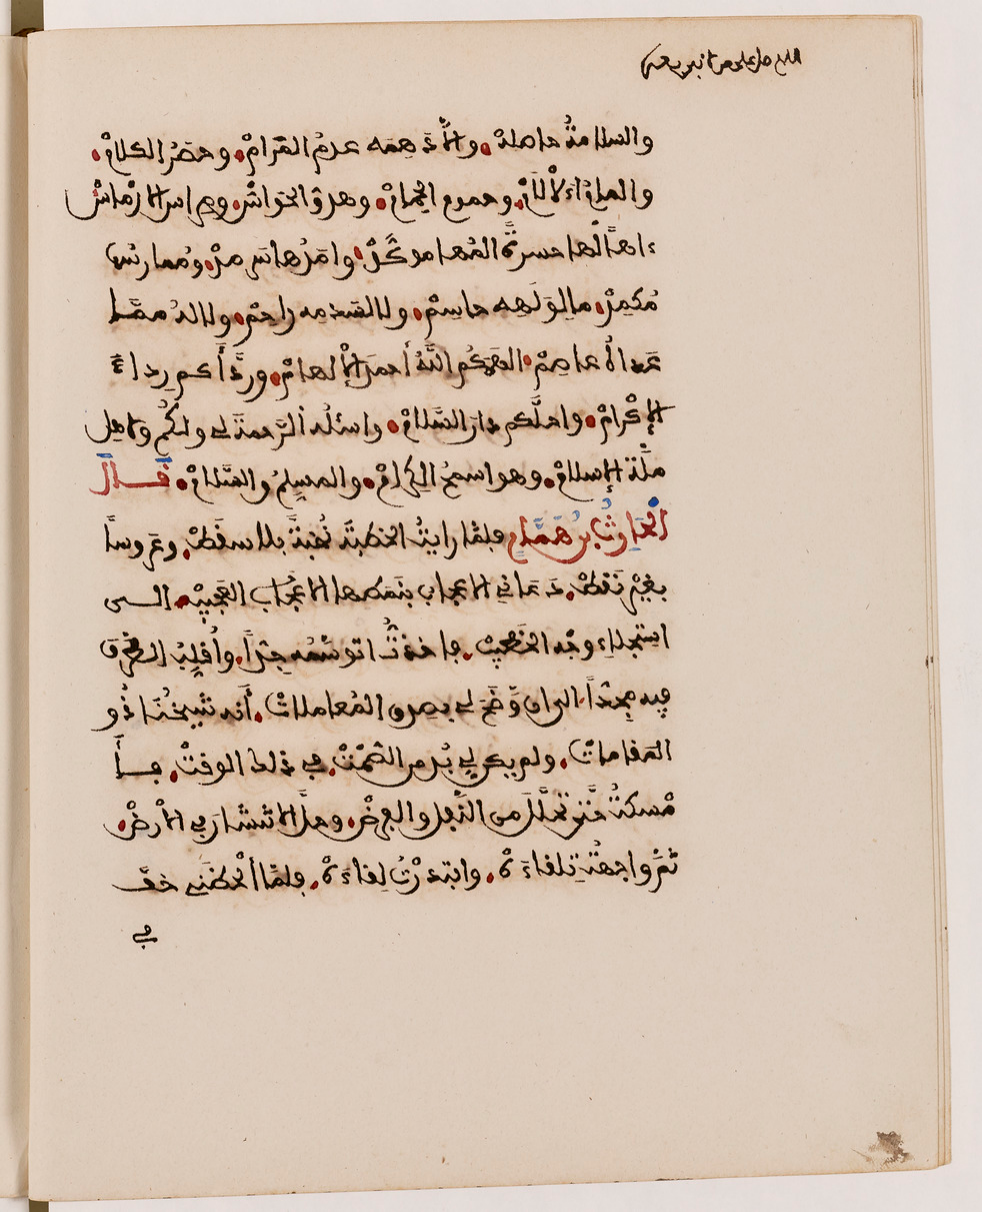 اللهم صل على سيدنا
والسلامة حاصلة. والا دهمه عدم المرام. وحصر الكلام.
والمام الالام. وحموم الحمام. وهدو الحواس. ومراس الارماس
ءاها لها حسرة المها موكد. وامدها سرمد. وممارسها
مكمد. ما لولهه حاسم. ولا لسدمه راحم. ولا له مما
عراه عاصم. الهمكم الله أحمد الإلهام. ورداكم رداء
الإكرام. واحلكم دار السلام. واسئله الرحمة لي ولكم ولاهل
ملة الإسلام. وهو اسمح الكرام. والمسلم والسلام. قال
الحارث بن همام فلما رايت الخطبة نخبة بلا سقط. وعروسا
بغير نقط. دعاني الاعجاب بنمطها الاعجاب العجيب. الى
استجلاء وجه الخطيب. فاخذت اتوسمه جدا. واقلب الطرف
فيه مجدا. الى ان وضح لي بصدق العلامات. أنه شيخنا ذو
المقامات. ولم يكن لي بد من الصمت. في ذلك الوقت. فأ
مسكت حتى تحلل من النفل والفرض. وحل الانتشار في الأرض.
ثم واجهت تلقاءه. وابتدرت لقاءه. فلما ألحظني خف
في